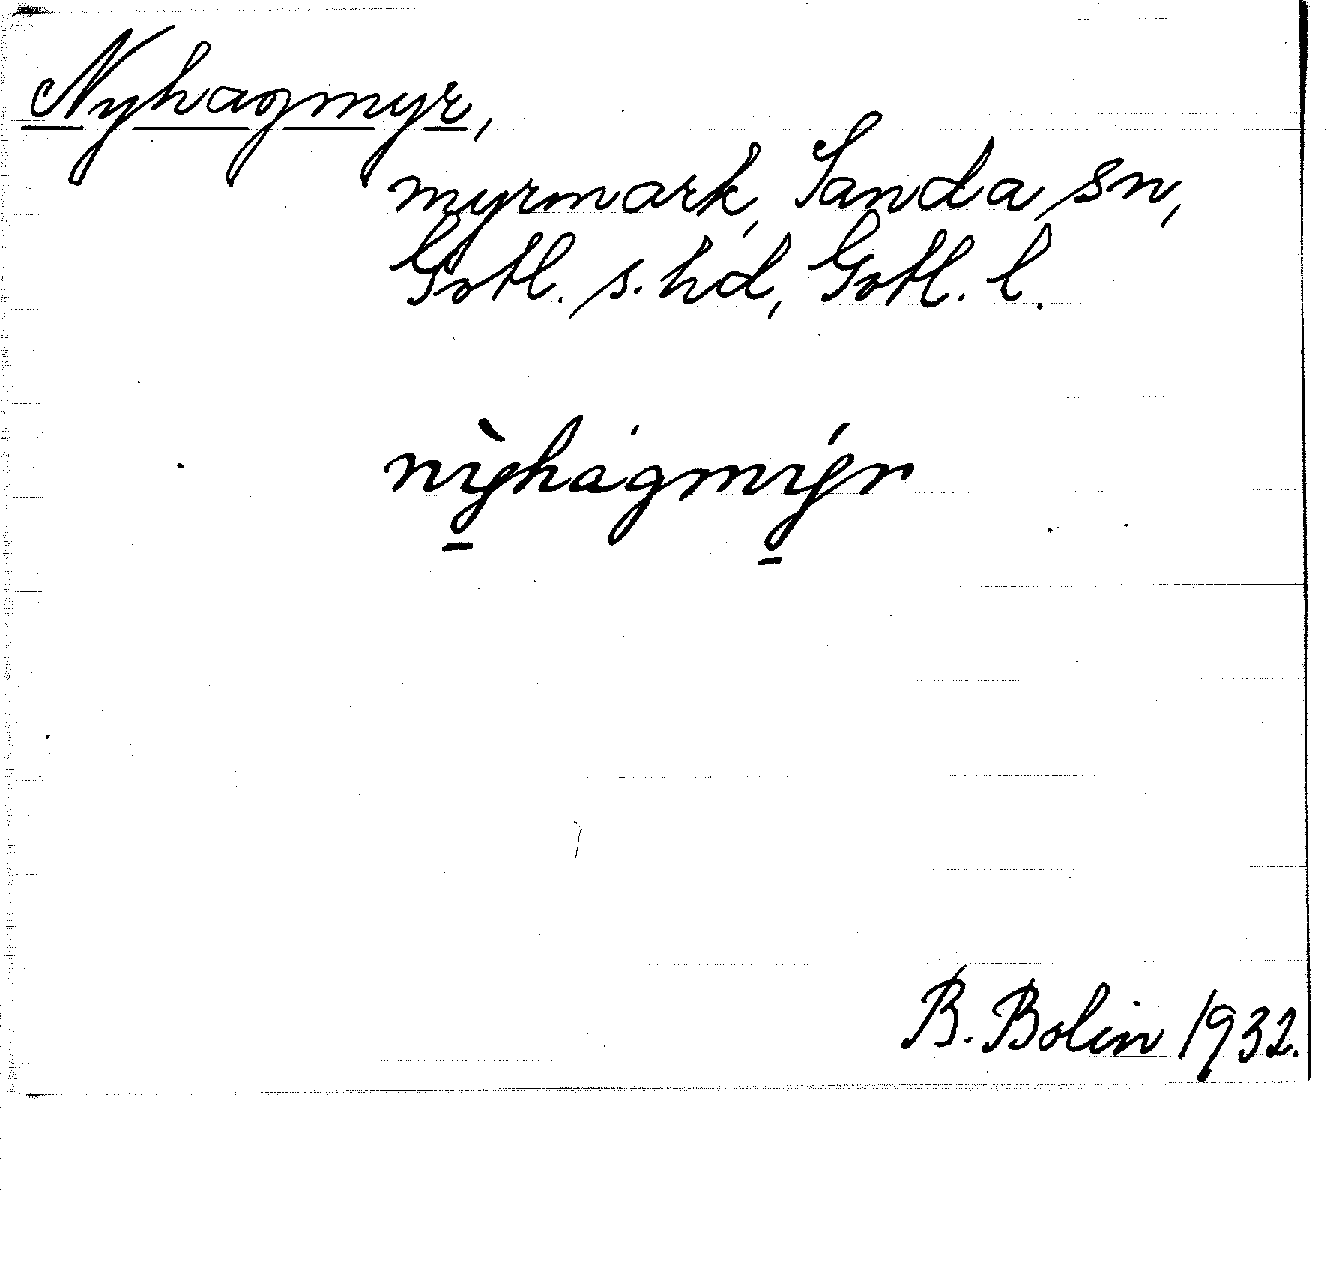 Nyhagmyr,
myrmark, Sanda sn,
Gotl. s. hd, Gotl. l.
nỳ̱hágmý̱r
B. Bolin 1932.